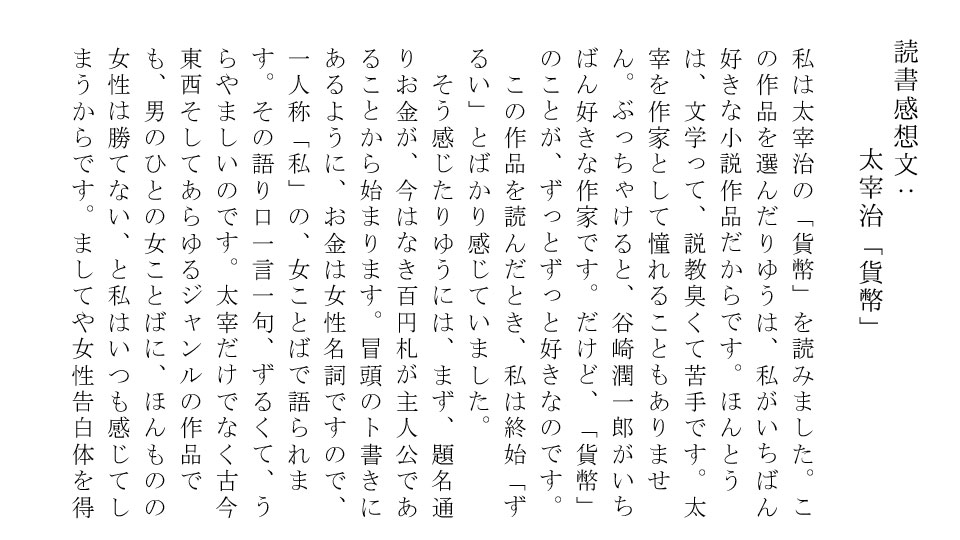 読書感想文：
太宰治「貨幣」
私は太宰治の「貨幣」を読みました。こ
の作品を選んだりゆうは、私がいちばん
好きな小説作品だからです。ほんとう
は、文学って、説教臭くて苦手です。太
宰を作家として憧れることもありませ
ん。ぶっちゃけると、谷崎潤一郎がいち
ばん好きな作家です。だけど、「貨幣」
のことが、ずっとずっと好きなのです。
この作品を読んだとき、私は終始「ず
るい」とばかり感じていました。
そう感じたりゆうには、まず、題名通
りお金が、今はなき百円札が主人公であ
ることから始まります。冒頭のト書きに
あるように、お金は女性名詞ですので、
一人称「私」の、女ことばで語られま
す。その語り口一言一句、ずるくて、う
らやましいのです。太宰だけでなく古今
東西そしてあらゆるジャンルの作品で
も、男のひとの女ことばに、ほんものの
女性は勝てない、と私はいつも感じてし
まうからです。ましてや女性告白体を得